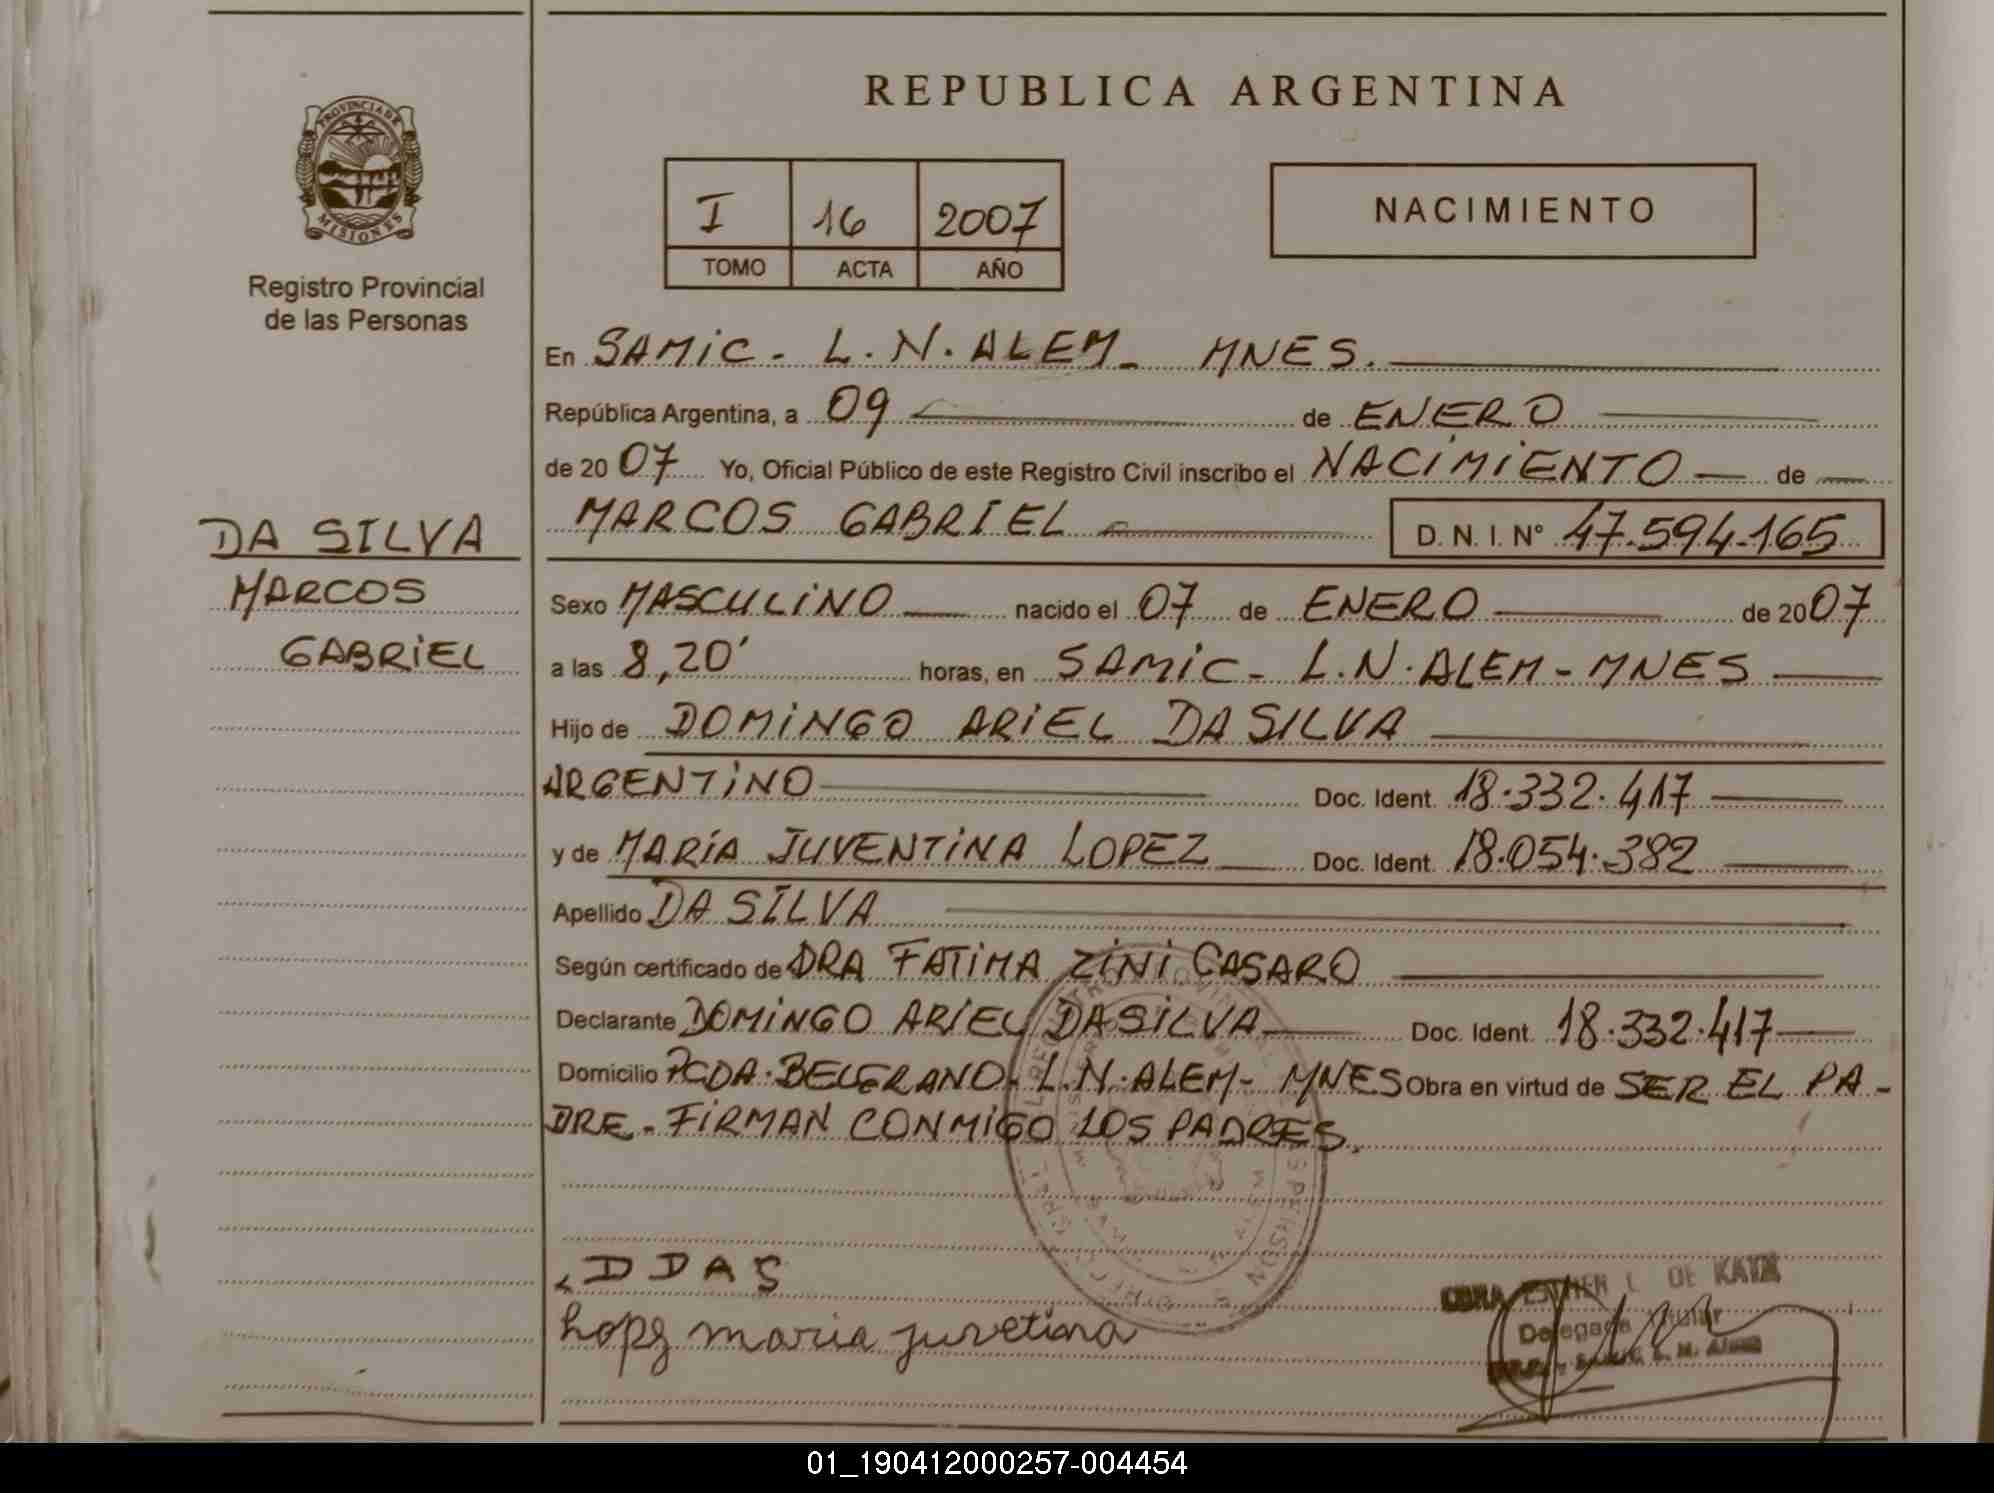 REPUBLICA ARGENTINA
PROVINCIA DE
MISIONES
Registro Provincial
de las Personas
I 16 2007
TOMO ACTA AÑO
NACIMIENTO
DA SILVA
MARCOS
GABRIEL
En SAMIC - L.N. ALEM - MNES.
República Argentina, a 09 de ENERO
de 2007 Yo, Oficial Público de este Registro Civil inscribo el NACIMIENTO de
MARCOS GABRIEL D. N. I. N° 47.594.165
Sexo MASCULINO nacido el 07 de ENERO de 2007
a las 8,20' horas, en SAMIC - L.N. ALEM - MNES
Hijo de DOMINGO ARIEL DA SILVA
ARGENTINO Doc. Ident. 18.332.417
y de MARÍA JUVENTINA LOPEZ Doc. Ident. 18.054.382
Apellido DA SILVA
Según certificado de DRA FATIMA ZINI CASARO
Declarante DOMINGO ARIEL DA SILVA Doc. Ident. 18.332.417
Domicilio PCDA. BELGRANO. L.N. ALEM - MNES Obra en virtud de SER EL PA-
DRE - FIRMAN CONMIGO LOS PADRES.
DDAS
Lopz maria juvetina
ESTHER L. DE
Delegada Titular
01_190412000257-004454